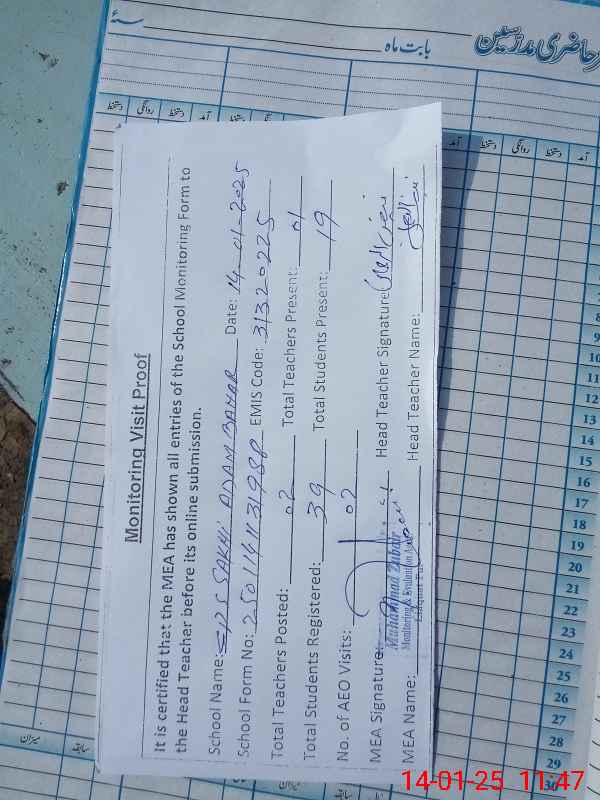 حاضری مدرسین
بابت ماہ
سنہ
آمد دستخط روانگی دستخط
Monitoring Visit Proof
It is certified that the MEA has shown all entries of the School Monitoring Form to
the Head Teacher before its online submission.
School Name: GPS SAKHI ADAM BAHAR Date: 14-01-2025
School Form No: 2501141131988 EMIS Code: 31320225
Total Teachers Posted: 02 Total Teachers Present: 01
Total Students Registered: 39 Total Students Present: 19
No. of AEO Visits: 02
MEA Signature: Head Teacher Signature:
Muhammad Zubair
Monitoring & Evaluation
MEA Name: Head Teacher Name:
7
8
9
10
11
12
13
14
15
16
17
18
19
20
21
22
23
24
25
26
27
28
29
30
میزان
سابقہ
14-01-25 11:47